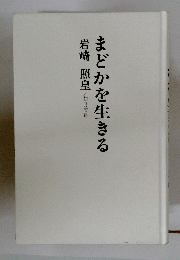 まどかを生きる
岩崎 照皇